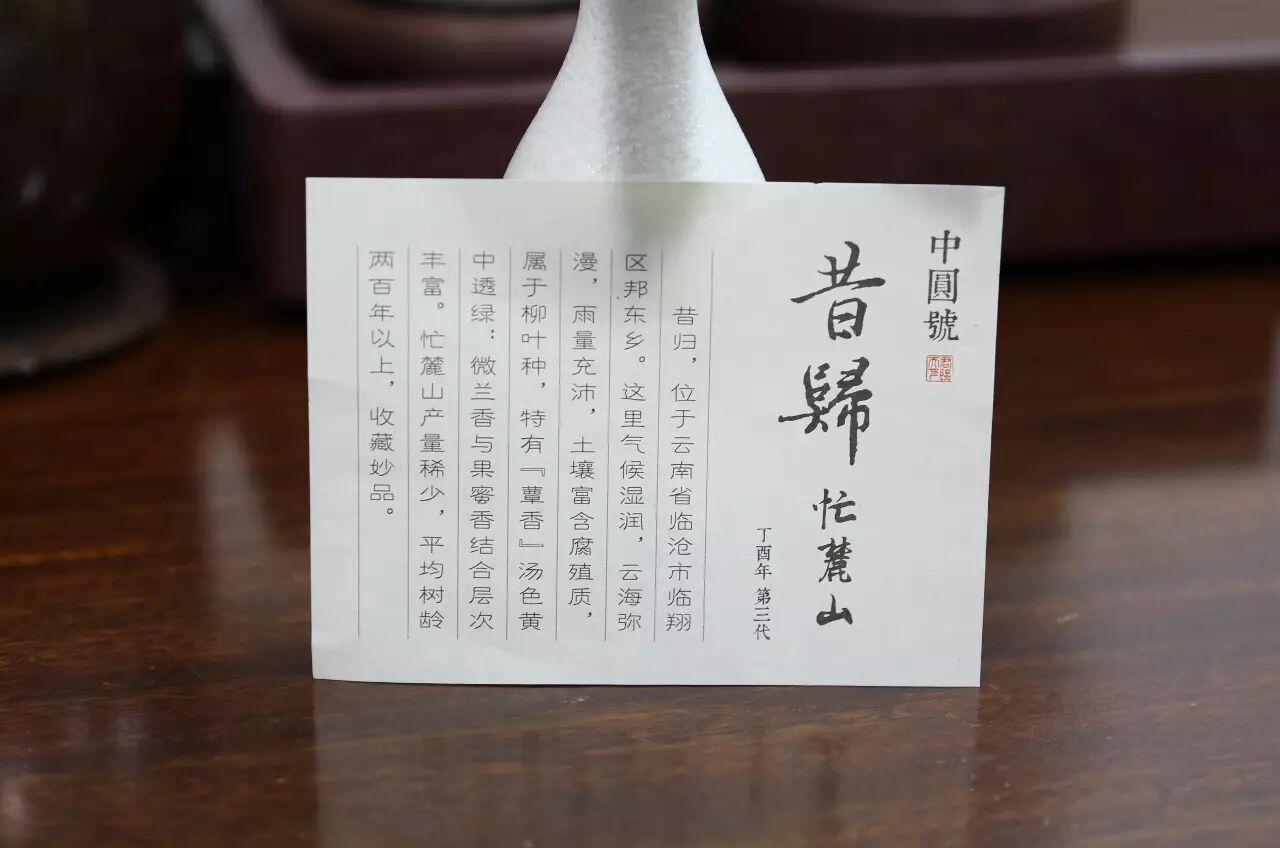 中圓號
昔歸 忙麓山
丁酉年 第三代
昔归，位于云南省临沧市临翔
区邦东乡。这里气候湿润，云海弥
漫，雨量充沛，土壤富含腐殖质，
属于柳叶种，特有『蕈香』汤色黄
中透绿；微兰香与果蜜香结合层次
丰富。忙麓山产量稀少，平均树龄
两百年以上，收藏妙品。